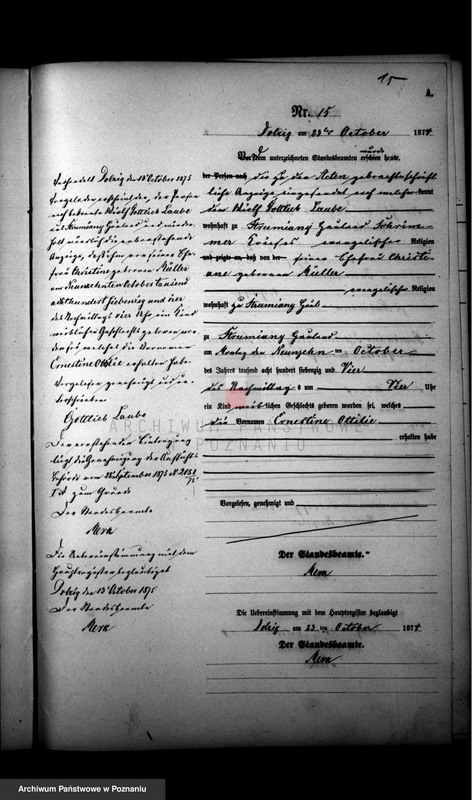 15
A.
Nr. 15
Dolzig am 23ten October 1874
Vor dem unterzeichneten Standesbeamten erschien heute, wurde
der Person nach die zu den Akten gebrachte schrift
liche Anzeige eingesandt nach welcher kennt
dem Wirth Gottlieb Laube
wohnhaft zu Strumiany Hauland Schrim-
mer Kreises evangelischer Religion
und zeigte an, daß von der seiner Ehefrau Christi-
ane geborenen Müller
evangelischer Religion
wohnhaft zu Strumiany Haul.
zu Strumiany Hauland
am Montag den Neunzehnten October
des Jahres tausend acht hundert siebenzig und Vier
des Nachmittag s um Vier Uhr
ein Kind weiblichen Geschlechts geboren worden sei, welches
die Vornamen Ernestine Ottilie
erhalten habe
Vorgelesen, genehmigt und
Der Standesbeamte.
Merk
Die Uebereinstimmung mit dem Hauptregister beglaubigt
Dolzig am 23 ten October 1874
Der Standesbeamte.
Merk
Verhandelt Dolzig den 13 October 1875
nach bekannte Wirth Gottlieb Laube
aus Strumiany Hauland und wieder
Anzeige, daß ihm von seiner Ehe-
frau Christine geborenen Müller
am Neunzehnten October tausend
achthundert siebenzig und vier
des Nachmittags vier Uhr ein Kind
weiblichen Geschlechts geboren wor-
den sei welches die Vornamen
Ernestine Ottilie erhalten habe
Vorgelesen genehmigt und un-
terschrieben
Gottlieb Laube
Der vorstehenden Eintragung
liegt die Genehmigung der Aufsichts-
behörde vom September 1875
zum Grunde
Der Standesbeamte
Merk
Die Uebereinstimmung mit dem
Hauptregister beglaubigt
Dolzig den 13 October 1875
Der Standesbeamte
Merk
ARCHIWUM PAŃSTWOWE
W POZNANIU
Archiwum Państwowe w Poznaniu